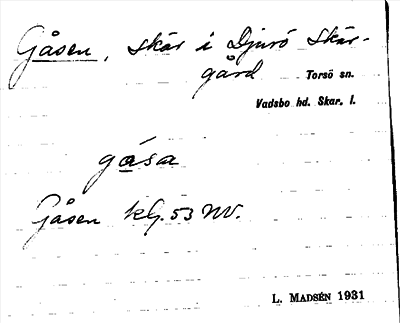 Gåsen, skär i Djurö skär-
gård Torsö sn.
Vadsbo hd. Skar. l.
gåsa
Gåsen klj. 53 NV.
L. MADSÉN 1931